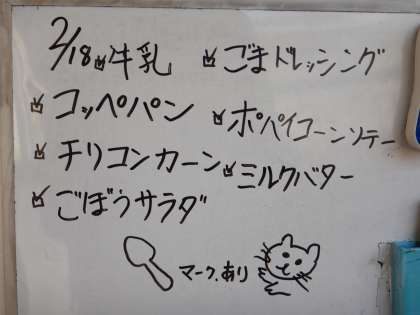 2/18 牛乳
コッペパン
チリコンカーン
ごぼうサラダ
ごまドレッシング
ポパイコーンソテー
ミルクバター
マーク、あり